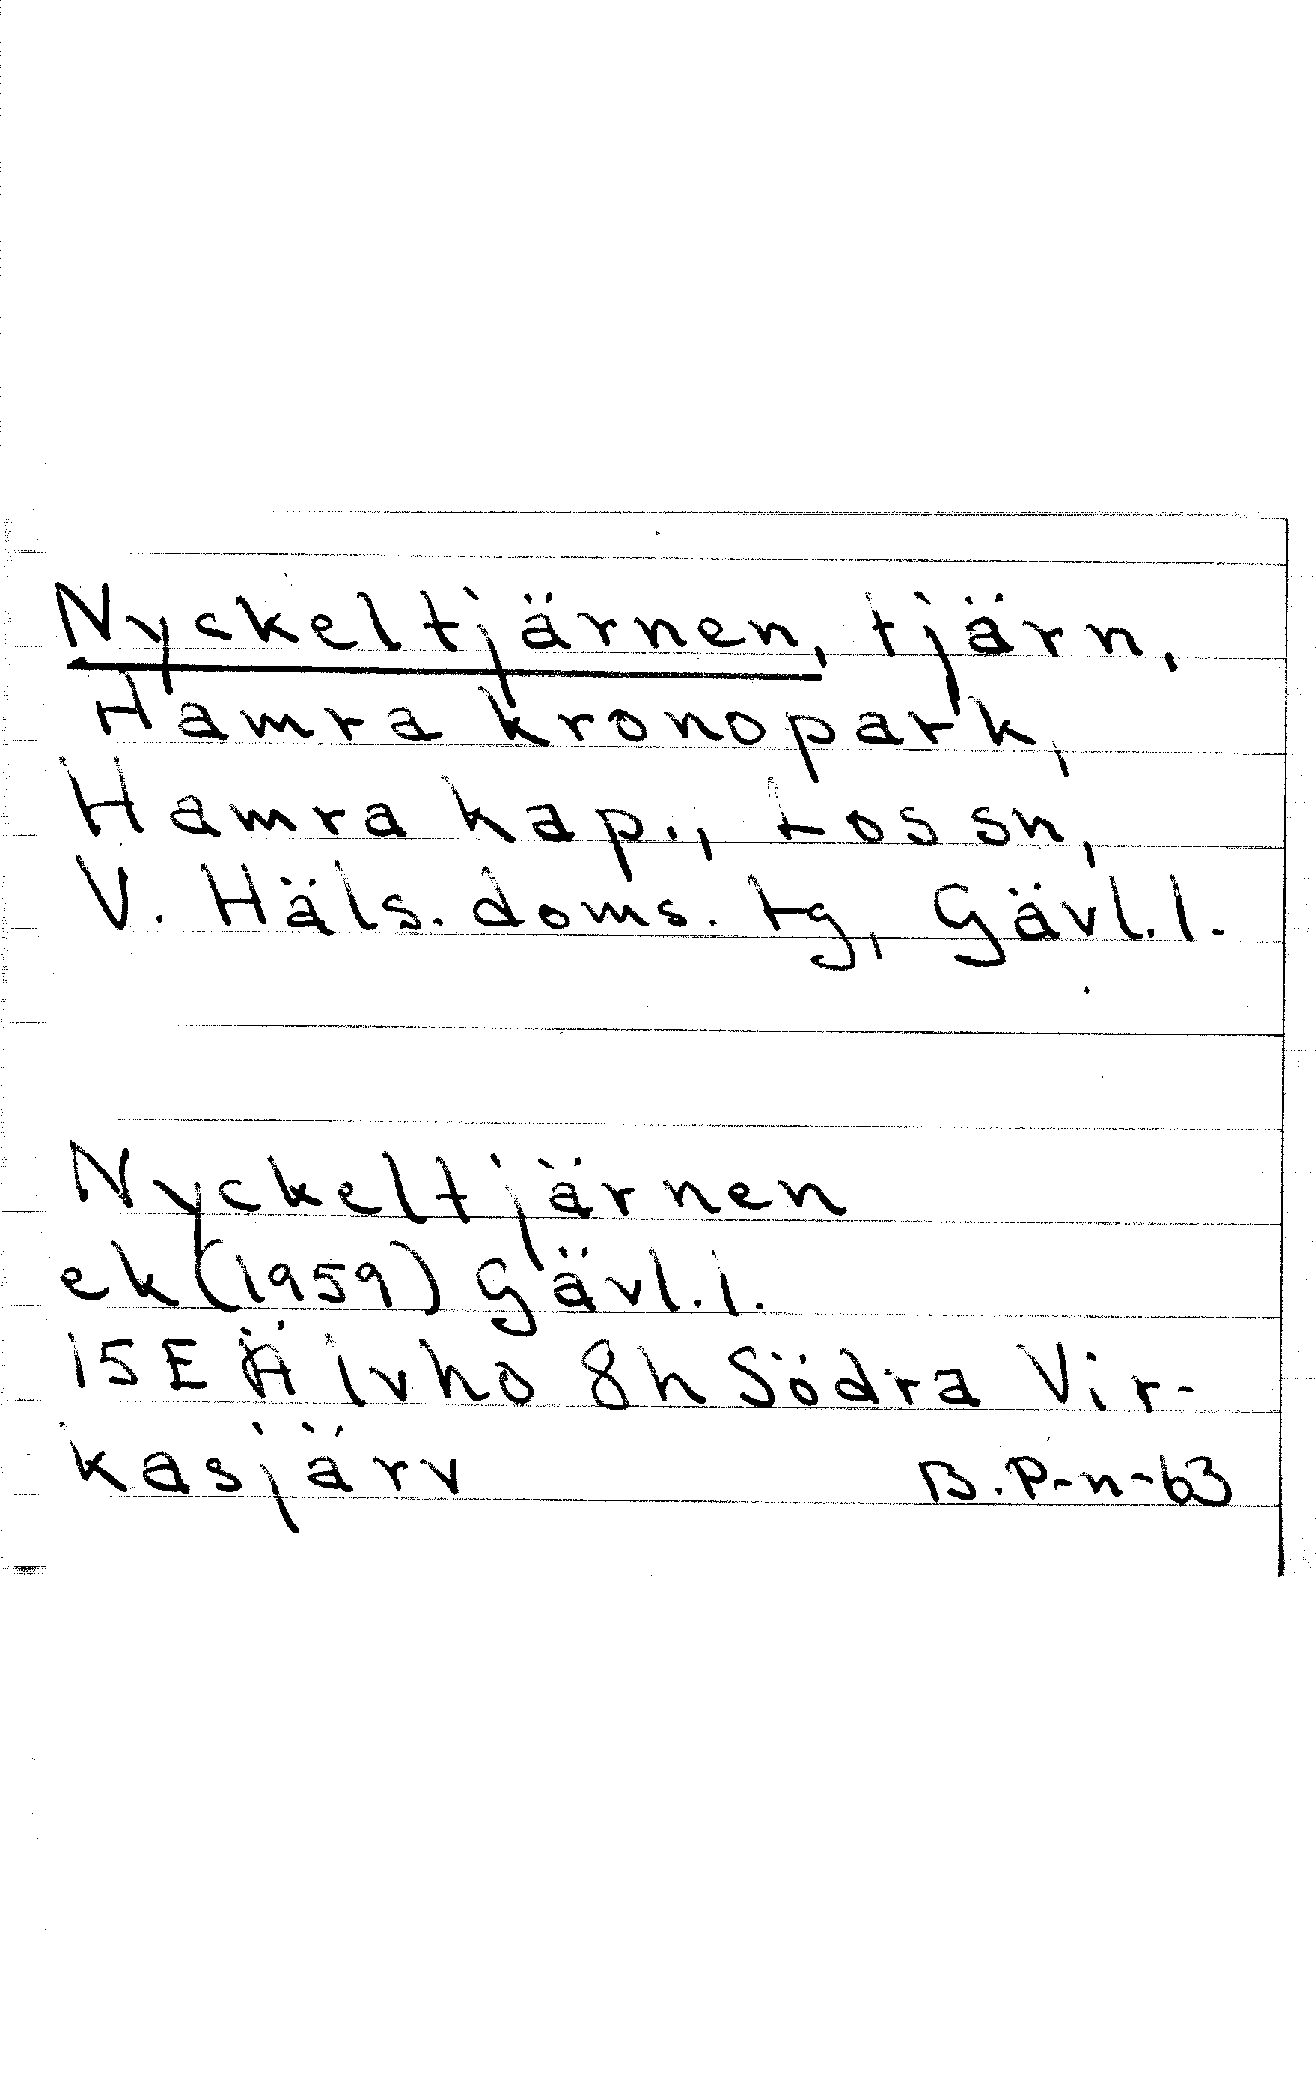 Nyckeltjärnen, tjärn,
Hamra kronopark,
Hamra kap., Los sn,
V. Häls. doms. tg, Gävl. l.
Nyckeltjärnen
ek (1959) Gävl. l.
15 E Älvho 8h Södra Vir-
kasjärv B. P-n-63